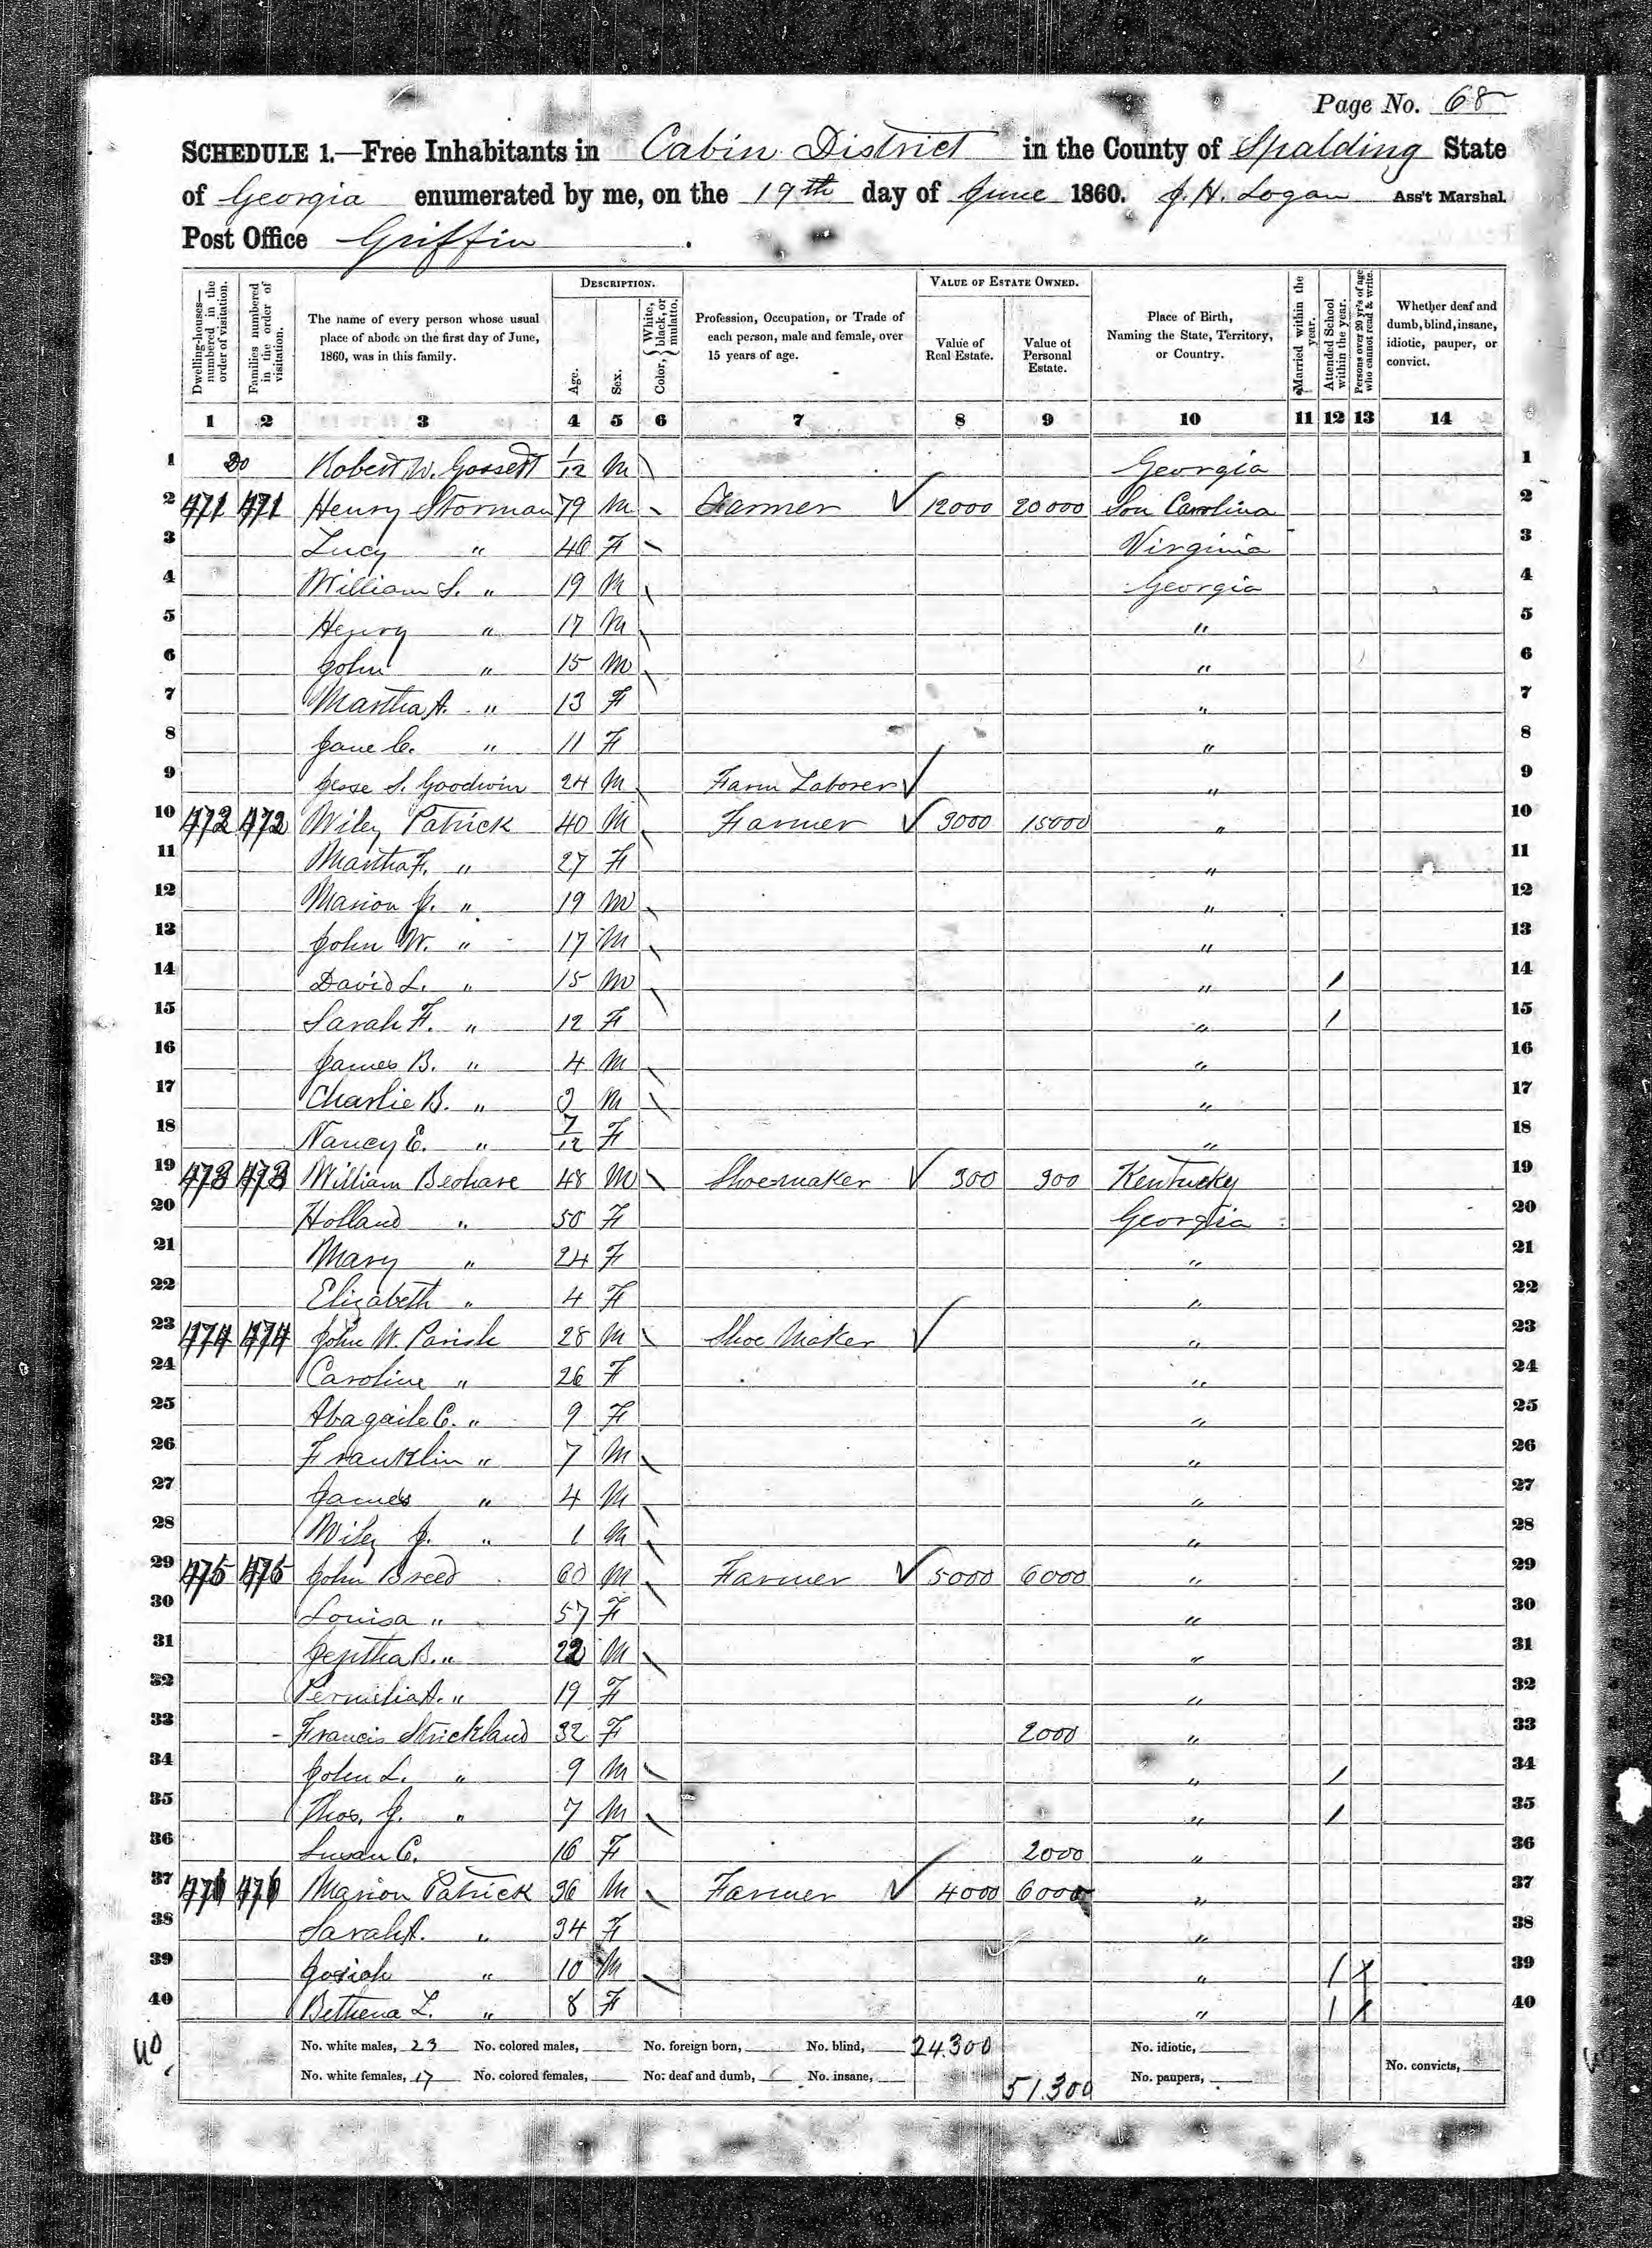 Page No. 68
SCHEDULE 1.—Free Inhabitants in Cabin District in the County of Spalding State
of Georgia enumerated by me, on the 19th day of June 1860. J. H. Logan Ass't Marshal.
Post Office Griffin .
Dwelling-houses—numbered in the order of visitation. Families numbered in the order of visitation. The name of every person whose usual place of abode on the first day of June, 1860, was in this family. DESCRIPTION. Age. Sex. Color, { White, black, or mulatto. Profession, Occupation, or Trade of each person, male and female, over 15 years of age. VALUE OF ESTATE OWNED. Value of Real Estate. Value of Personal Estate. Place of Birth, Naming the State, Territory, or Country. Married within the year. Attended School within the year. Persons over 20 yr's of age who cannot read & write. Whether deaf and dumb, blind, insane, idiotic, pauper, or convict.
1 2 3 4 5 6 7 8 9 10 11 12 13 14
1 Do Robert W. Gossett 1/12 M Georgia 1
2 471 471 Henry Storman 79 M Farmer ✓ 12000 20000 Sou Carolina 2
3 Lucy " 46 F Virginia 3
4 William S. " 19 M Georgia 4
5 Henry " 17 M " 5
6 John " 15 M " 6
7 Martha A. " 13 F " 7
8 Jane C. " 11 F " 8
9 Jesse S. Goodwin 24 M Farm Laborer ✓ " 9
10 472 472 Wiley Patrick 40 M Farmer ✓ 3000 15000 " 10
11 Martha F. " 27 F " 11
12 Marion J. " 19 M " 12
13 John W. " 17 M " 13
14 David L. " 15 M " / 14
15 Sarah F. " 12 F " / 15
16 James B. " 4 M " 16
17 Charlie B. " 3 M " 17
18 Nancy E. " 7/12 F " 18
19 473 473 William Beohare 48 M Shoemaker ✓ 300 300 Kentucky 19
20 Holland " 50 F Georgia 20
21 Mary " 24 F " 21
22 Elizabeth " 4 F " 22
23 474 474 John W. Parish 28 M Shoe Maker ✓ " 23
24 Caroline " 26 F " 24
25 Abagaile C. " 9 F " 25
26 Franklin " 7 M " 26
27 James " 4 M " 27
28 Wiley J. " 1 M " 28
29 475 475 John Breed 60 M Farmer ✓ 5000 6000 " 29
30 Louisa " 57 F " 30
31 Jeptha B. " 22 M " 31
32 Permelia A. " 19 F " 32
33 Francis Strickland 32 F 2000 " 33
34 John L. " 9 M " / 34
35 Thos. J. " 7 M " / 35
36 Susan C. 16 F 2000 " 36
37 476 476 Marion Patrick 36 M Farmer ✓ 4000 6000 " 37
38 Sarah A. " 34 F " 38
39 Josiah " 10 M " / X 39
40 Bethena L. " 8 F " / X 40
40 No. white males, 23 No. colored males, No. foreign born, No. blind, 24.300 No. idiotic, No. convicts,
No. white females, 17 No. colored females, No. deaf and dumb, No. insane, 51.300 No. paupers,